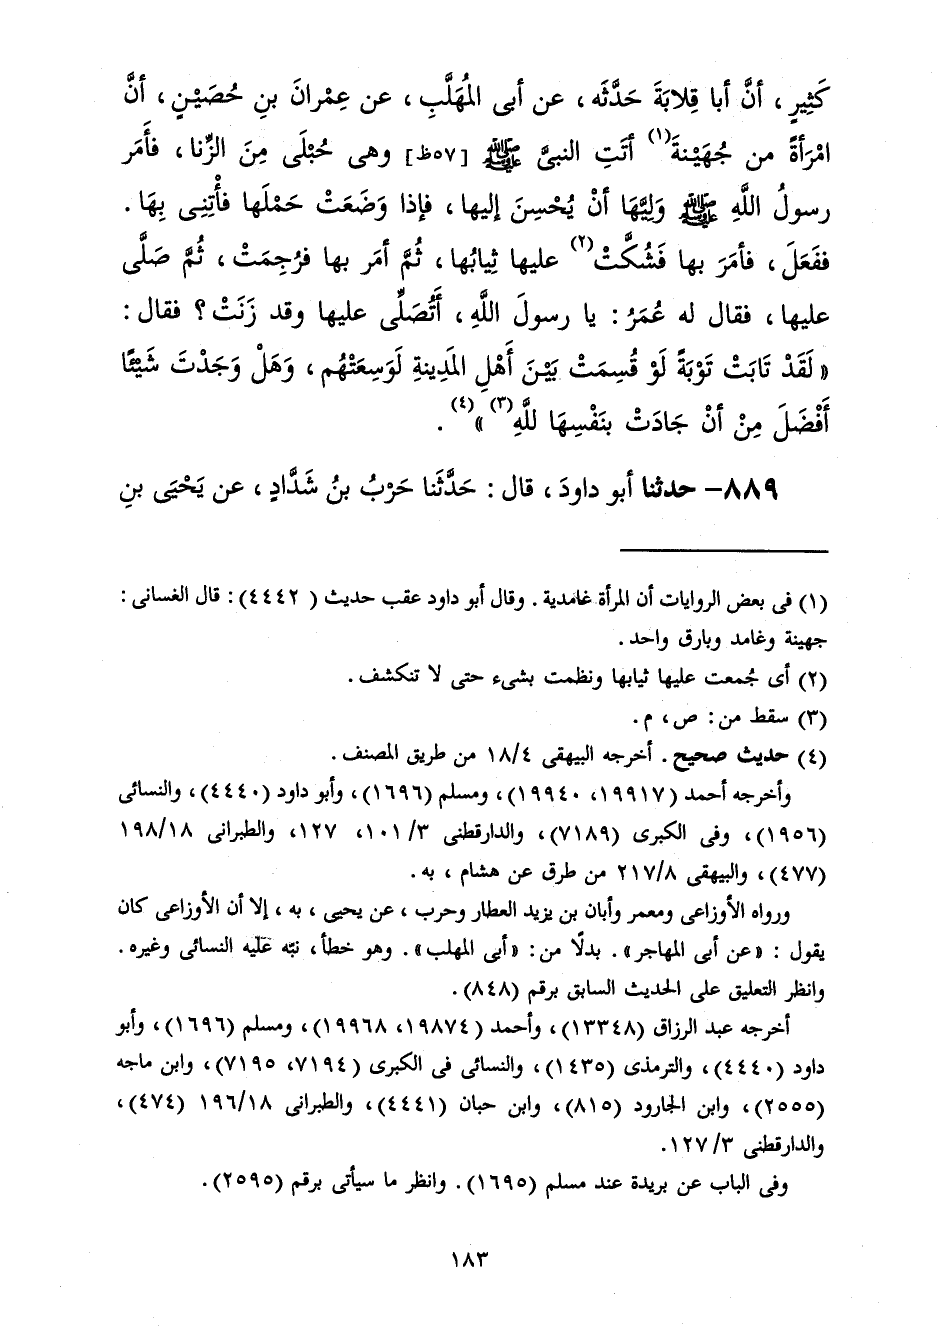 كَثِيرٍ ، أنَّ أبا قِلابَةَ حَدَّثَه ، عن أبى المُهَلَّبِ ، عن عِمْرانَ بنِ حُصَيْنٍ ، أنَّ
امْرَأةً من جُهَيْنةَ(١) أتَتِ النبىَّ ﷺ [٥٧ظ] وهى حُبْلَى مِنَ الزِّنا ، فأَمَر
رسولُ اللَّهِ ﷺ وَلِيَّهَا أنْ يُحْسِنَ إليها ، فإذا وَضَعَتْ حَمْلَها فأْتِنِى بِهَا .
ففَعَلَ ، فأمَرَ بها فَشُكَّتْ(٢) عليها ثِيابُها ، ثُمَّ أمَر بها فرُجِمَتْ ، ثُمَّ صَلَّى
عليها ، فقال له عُمَرُ : يا رسولَ اللَّهِ ، أَتُصَلِّى عليها وقد زَنَتْ ؟ فقال :
« لَقَدْ تابَتْ تَوْبَةً لَوْ قُسِمَتْ بَيْنَ أَهْلِ المَدِينةِ لَوَسِعَتْهُم ، وَهَلْ وَجَدْتَ شَيْئًا
أَفْضَلَ مِنْ أنْ جَادَتْ بنَفْسِهَا للَّهِ(٣) »(٤) .
٨٨٩- حدثنا أبو داودَ ، قال : حَدَّثَنا حَرْبُ بنُ شَدَّادٍ ، عن يَحْيَى بنِ
(١) فى بعض الروايات أن المرأة غامدية . وقال أبو داود عقب حديث ( ٤٤٤٢) : قال الغسانى :
جهينة وغامد وبارق واحد .
(٢) أى جُمعت عليها ثيابها ونظمت بشىء حتى لا تنكشف .
(٣) سقط من : ص ، م .
(٤) حديث صحيح . أخرجه البيهقى ١٨/٤ من طريق المصنف .
وأخرجه أحمد (١٩٩١٧، ١٩٩٤٠) ، ومسلم (١٦٩٦) ، وأبو داود (٤٤٤٠) ، والنسائى
(١٩٥٦) ، وفى الكبرى (٧١٨٩) ، والدارقطنى ١٠١/٣، ١٢٧، والطبرانى ١٩٨/١٨
(٤٧٧) ، والبيهقى ٢١٧/٨ من طرق عن هشام ، به .
ورواه الأوزاعى ومعمر وأبان بن يزيد العطار وحرب ، عن يحيى ، به ، إلا أن الأوزاعى كان
يقول : « عن أبى المهاجر » . بدلًا من : « أبى المهلب » . وهو خطأ ، نبّه عليه النسائى وغيره .
وانظر التعليق على الحديث السابق برقم (٨٤٨) .
أخرجه عبد الرزاق (١٣٣٤٨) ، وأحمد (١٩٨٧٤، ١٩٩٦٨) ، ومسلم (١٦٩٦) ، وأبو
داود (٤٤٤٠) ، والترمذى (١٤٣٥) ، والنسائى فى الكبرى (٧١٩٤، ٧١٩٥) ، وابن ماجه
(٢٥٥٥) ، وابن الجارود (٨١٥) ، وابن حبان (٤٤٤١) ، والطبرانى ١٩٦/١٨ (٤٧٤) ،
والدارقطنى ١٢٧/٣.
وفى الباب عن بريدة عند مسلم (١٦٩٥) . وانظر ما سيأتى برقم (٢٥٩٥) .
١٨٣